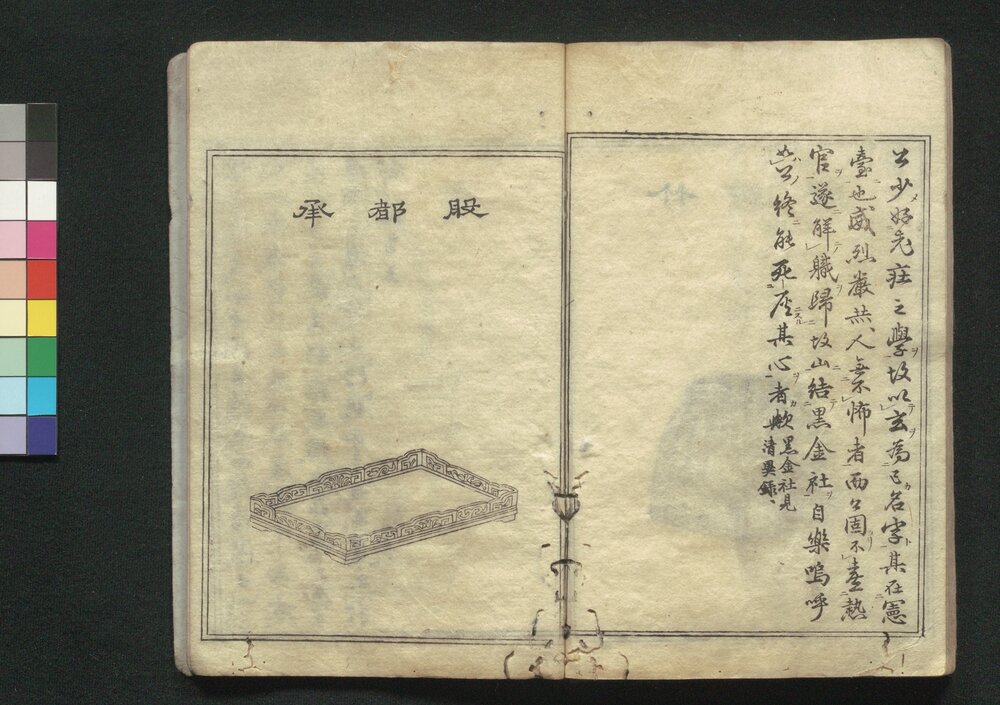 公少好老荘之學故以玄為己名字其在憲
臺也威烈嚴恭人無不怖者而公固不喜熱
官遂解職歸故山結黒金社自樂嗚呼
公終能死灰其心者歟黒金社見
清異録
股都承